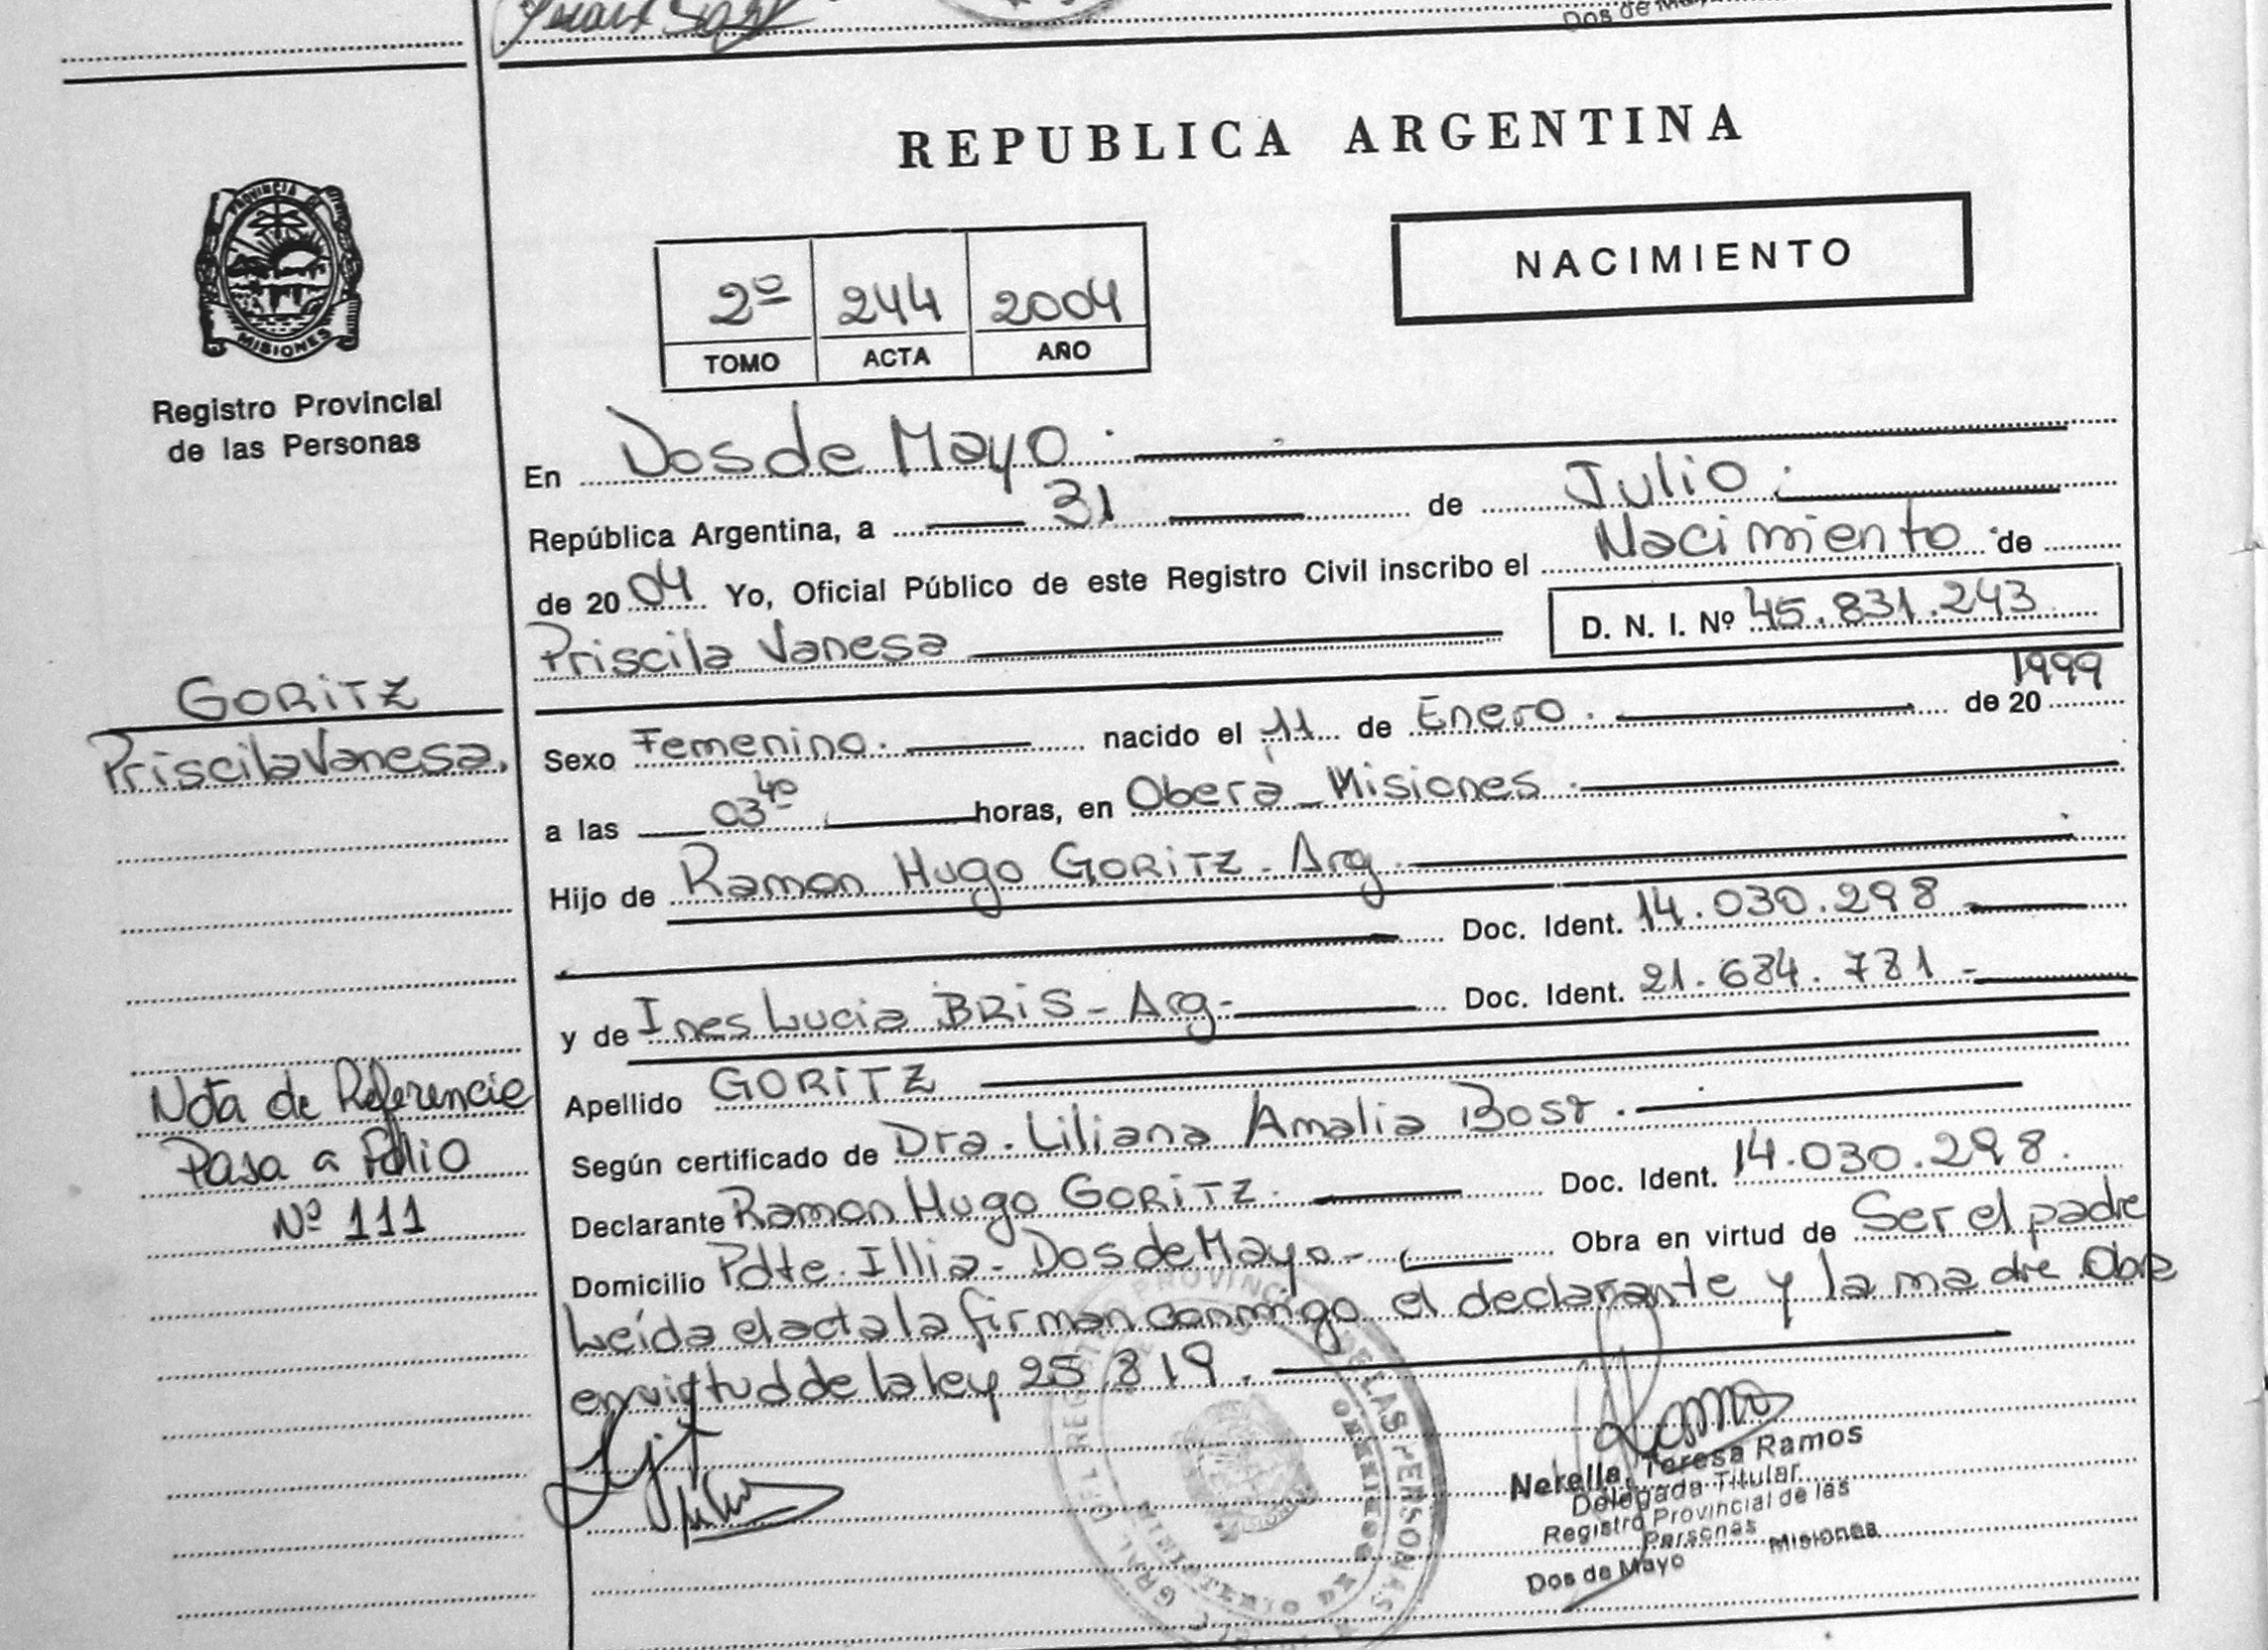 Dos de
REPUBLICA ARGENTINA
PROVINCIA DE
MISIONES
Registro Provincial
de las Personas
NACIMIENTO
2º 244 2004
TOMO ACTA AÑO
En Dos de Mayo.
República Argentina, a 31 de Julio.
de 2004 Yo, Oficial Público de este Registro Civil inscribo el Nacimiento de
Priscila Vanesa D. N. I. Nº 45.831.243
GORITZ
Priscila Vanesa.
Sexo Femenino. nacido el 11 de Enero. de 20 1999
a las 03 40 horas, en Obera - Misiones.
Hijo de Ramon Hugo GORITZ - Arg
Doc. Ident. 14.030.298 -
y de Ines Lucia BRIS - Arg - Doc. Ident. 21.684.781 -
Apellido GORITZ
Según certificado de Dra. Liliana Amalia Bosr.
Declarante Ramon Hugo GORITZ. Doc. Ident. 14.030.298.
Domicilio Pdte. Illia - Dos de Mayo - Obra en virtud de Ser el padre
Leída el acta la firman conmigo el declarante y la madre. Obra
en virtud de la ley 25.819.
Nota de Referencie
Pasa a Folio
Nº 111
Nerella, Teresa Ramos
Delegada Titular
Registro Provincial de las
Personas Misiones
Dos de Mayo